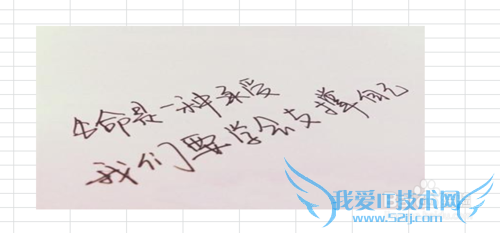 生命是一种承受
我们要学会支撑自己
我爱IT技术网
www.52ij.com